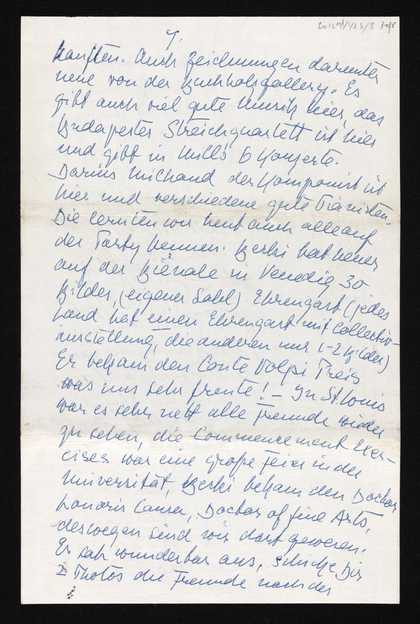 7.
kauften. Auch Zeichnungen darunter
neue von der Buchholzgallery. Es
gibt auch viel gute Musik hier, das
Budapester Streichquartett ist hier
und gibt in Mills 6 Konzerte.
Darius Milhaud der Komponist ist
hier und verschiedene gute Pianisten.
Die lernten wir heut auch alle auf
der Party kennen. Becki hat heuer
auf der Biënale in Venedig 30
Bilder, (eigener Sahl) Ehrengast (jedes
Land hat einen Ehrengast mit Collectiv-
ausstellung, die anderen nur 1-2 Bilder)
Er bekam den Conte Volpi Preis
was uns sehr freute! – In St Louis
war es sehr nett alle Freunde wieder
zu sehen, die Commencement Exer-
cises war eine große Feier in der
Universität, Becki bekam den Doctor
honoris Causa, Doctor of fine Arts,
deswegen sind wir dort gewesen.
Er sah wunderbar aus, schicke Dir
2 Photos die Freunde nach der